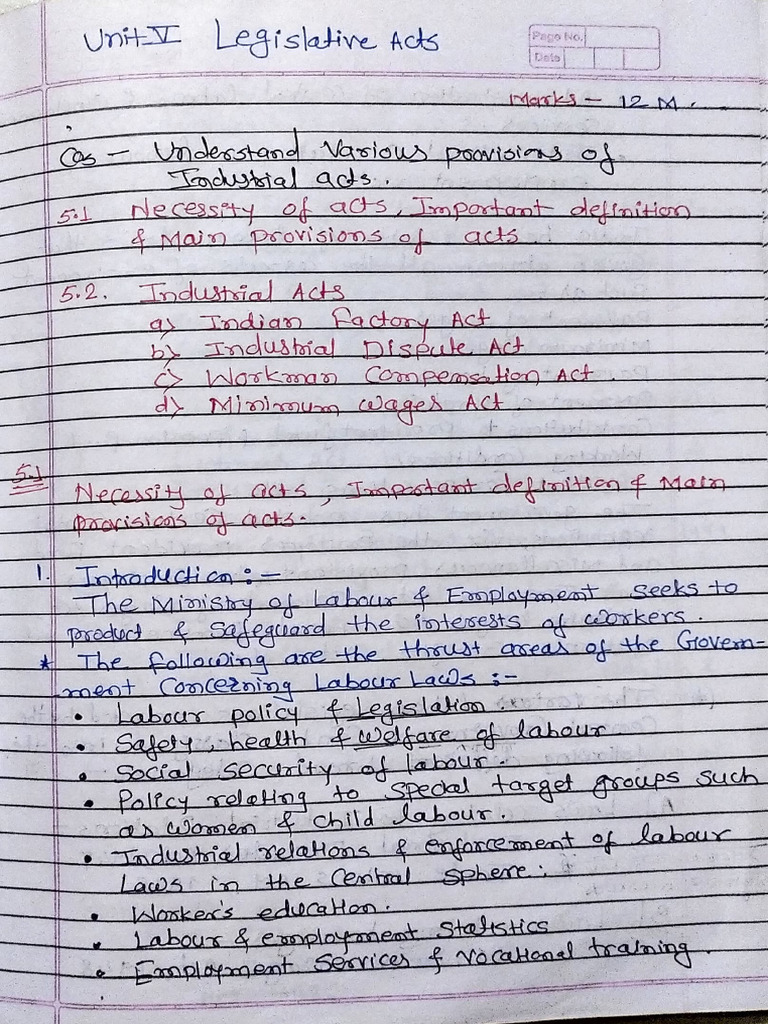 Unit-V Legislative Acts
Page No.
Date
Marks - 12 M.
Cos - Understand Various provisions of
Industrial acts.
5.1 Necessity of acts, Important definition
& Main provisions of acts
5.2. Industrial Acts
a) Indian Factory Act
b) Industrial Dispute Act
c) Workman Compensation Act.
d) Minimum wages Act.
5.1
Necessity of acts, Important definition & Main
provisions of acts.
1. Introduction :-
The Ministry of Labour & Employment seeks to
product & Safeguard the interests of workers.
* The following are the thrust areas of the Govern-
ment Concerning Labour Laws :-
• Labour policy & Legislation
• Safety, health & welfare of labour
• Social security of labour.
• Policy relating to special target groups such
as women & child labour.
• Industrial relations & enforcement of labour
Laws in the Central sphere.
• Worker's education.
• Labour & employment Statistics
• Employment Services & vocational training.